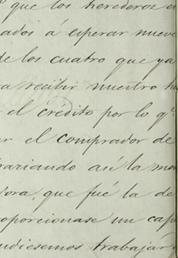 que los herederos
ados á esperar nueve
de los cuatro que ya
a recibir nuestro h
el crédito por lo q.e
ar el comprador de
trariando así la mo
dora, que fué la de
oporcionase un cap
udiesemos trabajar